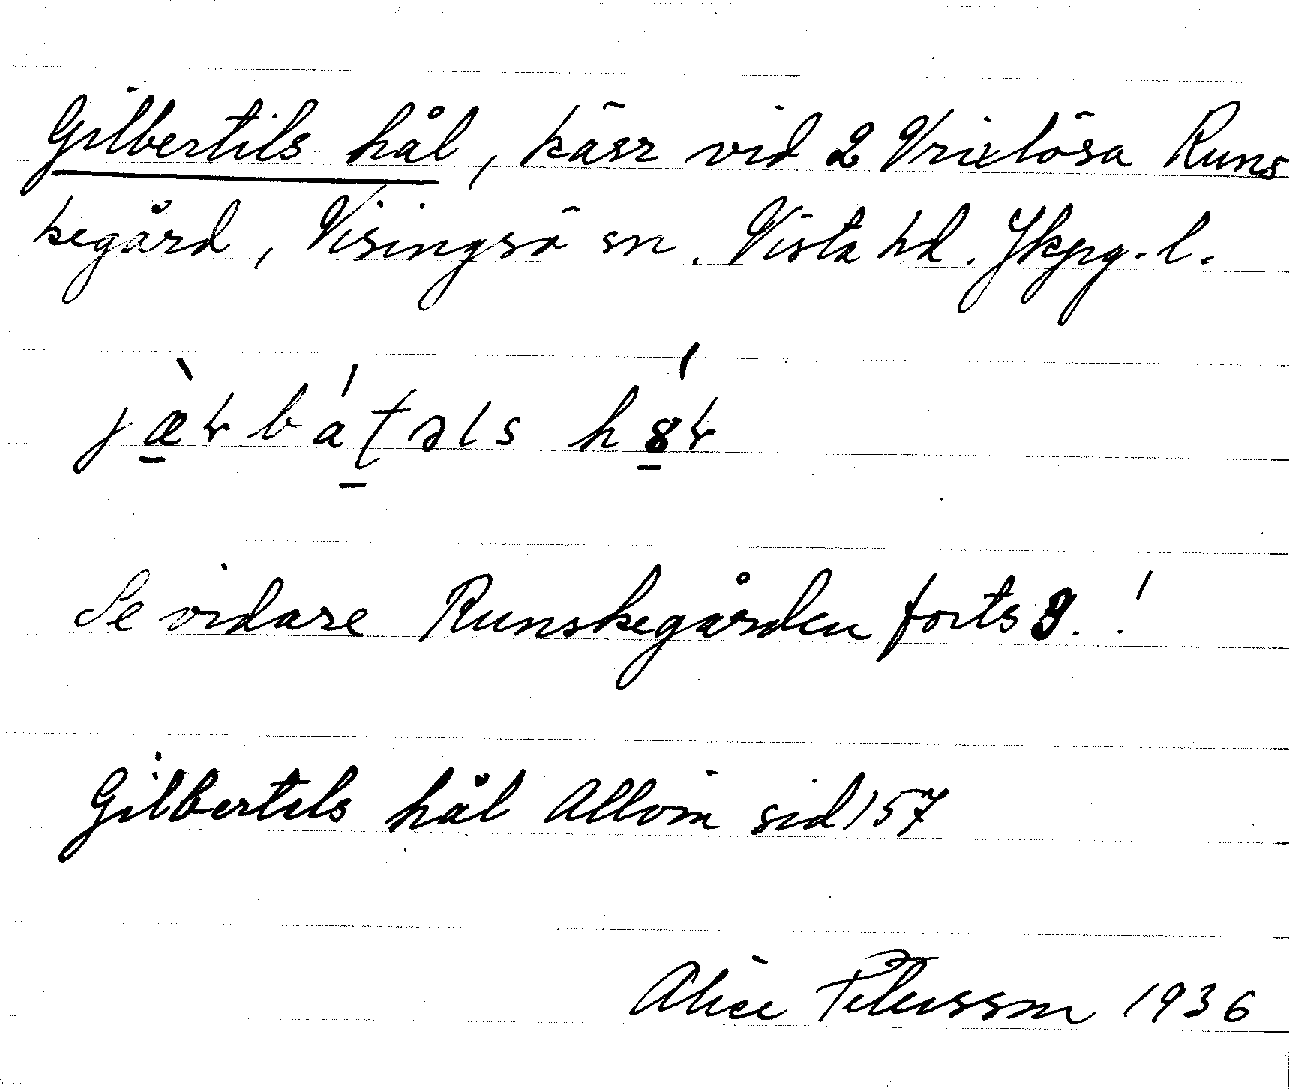 Gilbertils hål, kärr vid 2 Vrixlösa Runs
kegård, Visingsö sn. Vista hd. Jkpg. l.
jæ̀ɫbáʈəls hɞ́ɫ
Se vidare Runskegården forts 9.!
Gilbertels hål Allvin sid 157
Alice Petersson 1936